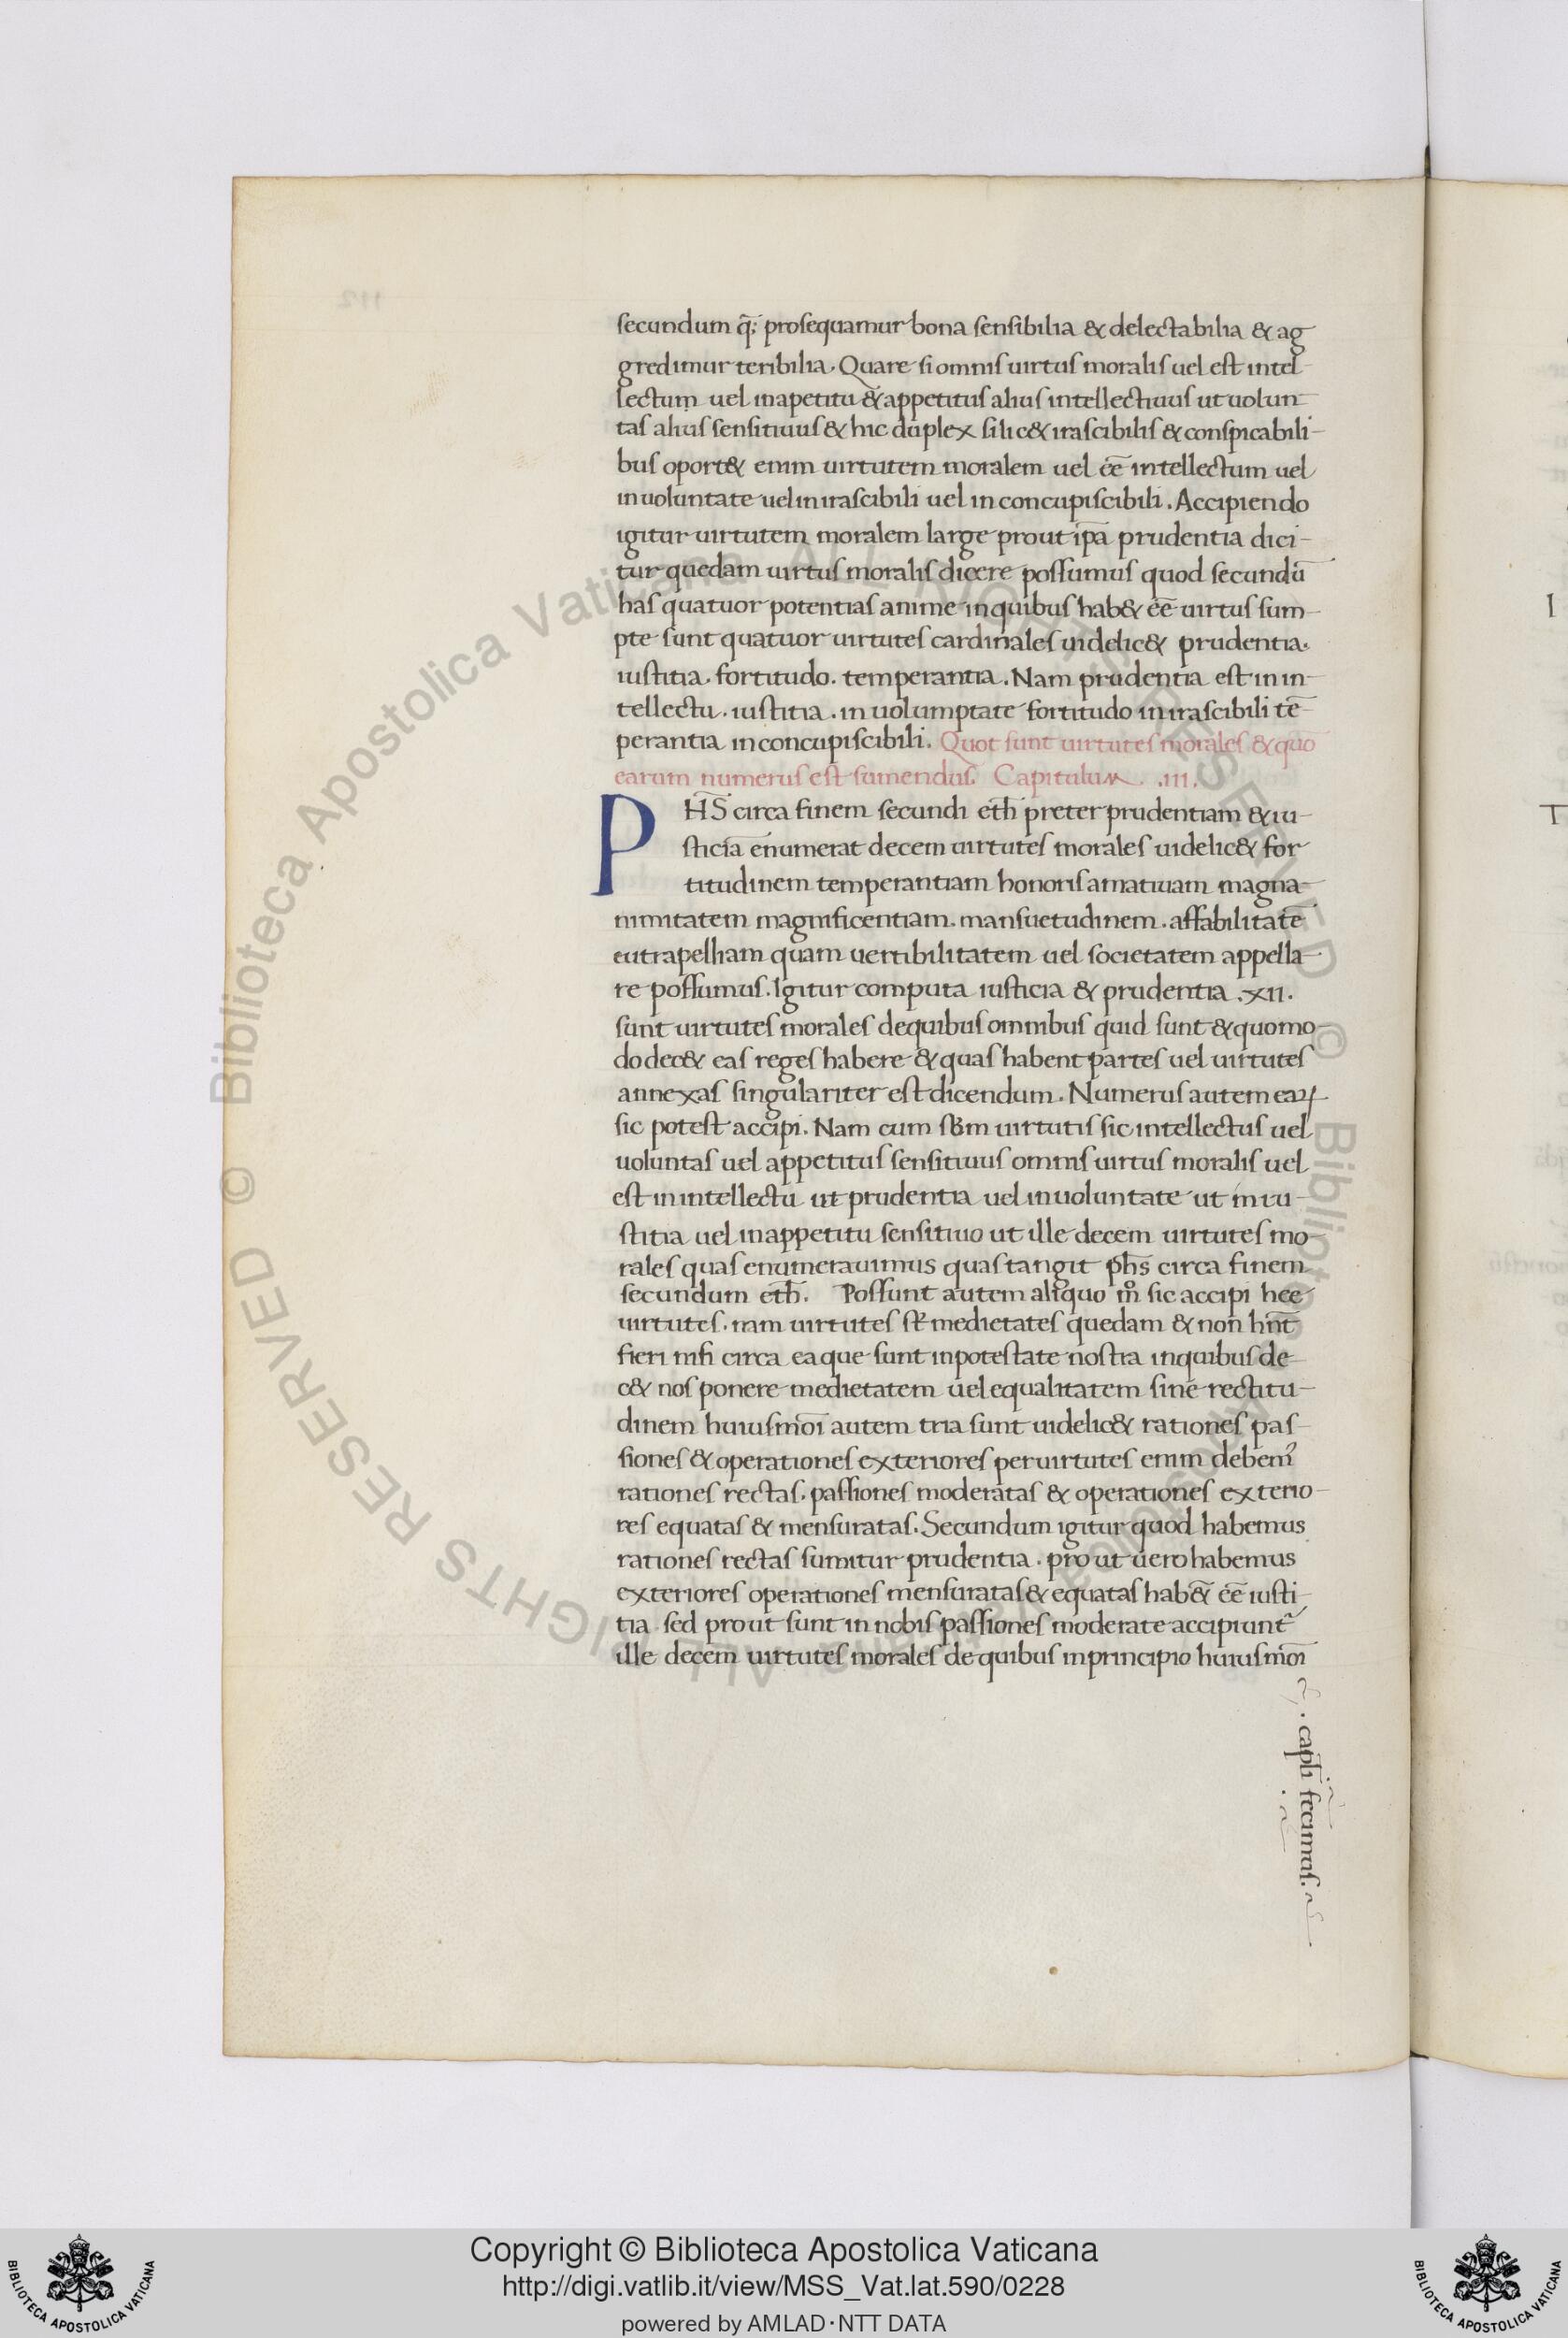 secundum q̃; prosequamur bona sensibilia & delectabilia & ag
gredimur teribilia. Quare si omnis uirtus moralis uel est intel-
lectum uel inapetitu & appetitus alius intellectiuus ut uolun-
tas alius sensitiuus & hic duplex silic& irascibilis & conspicabili-
bus oport& enim uirtutem moralem uel ēē intellectum uel
in uoluntate uel in irascibili uel in concupiscibili. Accipiendo
igitur uirtutem moralem large prout ip̄a prudentia dici-
tur quedam uirtus moralis dicere possumus quod secundū
has quatuor potentias anime in quibus hab& ēē uirtus sum-
pte sunt quatuor uirtutes cardinales uidelic& prudentia.
iustitia. fortitudo. temperantia. Nam prudentia est in in-
tellectu. iustitia. in uolumptate fortitudo in irascibili tē-
perantia in concupiscibili. Quot sunt uirtutes morales & quō
earum numerus est sumendus. Capitulum .III.
PHS̄ circa finem secundi eth̄ preter prudentiam & iu-
sticīa enumerat decem uirtutes morales uidelic& for
titudinem temperantiam honoris amatiuam magna-
nimitatem magnificentiam. mansuetudinem. affabilitatē
eutrapelliam quam uertibilitatem uel societatem appella-
re possumus. Igitur computa iusticia & prudentia .XII.
sunt uirtutes morales de quibus omnibus quid sunt & quomo-
do dec& eas reges habere & quas habent partes uel uirtutes
annexas singulariter est dicendum. Numerus autem eaꝝ
sic potest accipi. Nam cum sƀm uirtutis sic intellectus uel
uoluntas uel appetitus sensitiuus omnis uirtus moralis uel
est in intellectu ut prudentia uel in uoluntate ut in iu-
stitia uel in appetitu sensitiuo ut ille decem uirtutes mo-
rales quas enumerauimus quas tangit ph̄s circa finem
secundum eth̄. Possunt autem aliquo m̊ sic accipi hee
uirtutes. nam uirtutes st̄ medietates quedam & non hn̄t
fieri nisi circa ea que sunt in potestate nostra in quibus de-
c& nos ponere medietatem uel equalitatem siue rectitu-
dinem huiusmōi autem tria sunt uidelic& rationes pas-
siones & operationes exteriores per uirtutes enim debem᾿
rationes rectas. passiones moderatas & operationes exterio-
res equatas & mensuratas. Secundum igitur quod habemus
rationes rectas sumitur prudentia. pro ut uero habemus
exteriores operationes mensuratas & equatas hab& ēē iusti-
tia. sed pro ut sunt in nobis passiones moderate accipiunt᷑
ille decem uirtutes morales de quibus in principio huiusmōi
. capl̄i fecimus.
Copyright © Biblioteca Apostolica Vaticana
http://digi.vatlib.it/view/MSS_Vat.lat.590/0228
powered by AMLAD·NTT DATA
© Biblioteca Apostolica Vaticana ALL RIGHTS RESERVED © Biblioteca Apostolica Vaticana ALL RIGHTS RESERVED
BIBLIOTECA APOSTOLICA VATICANA
BIBLIOTECA APOSTOLICA VATICANA